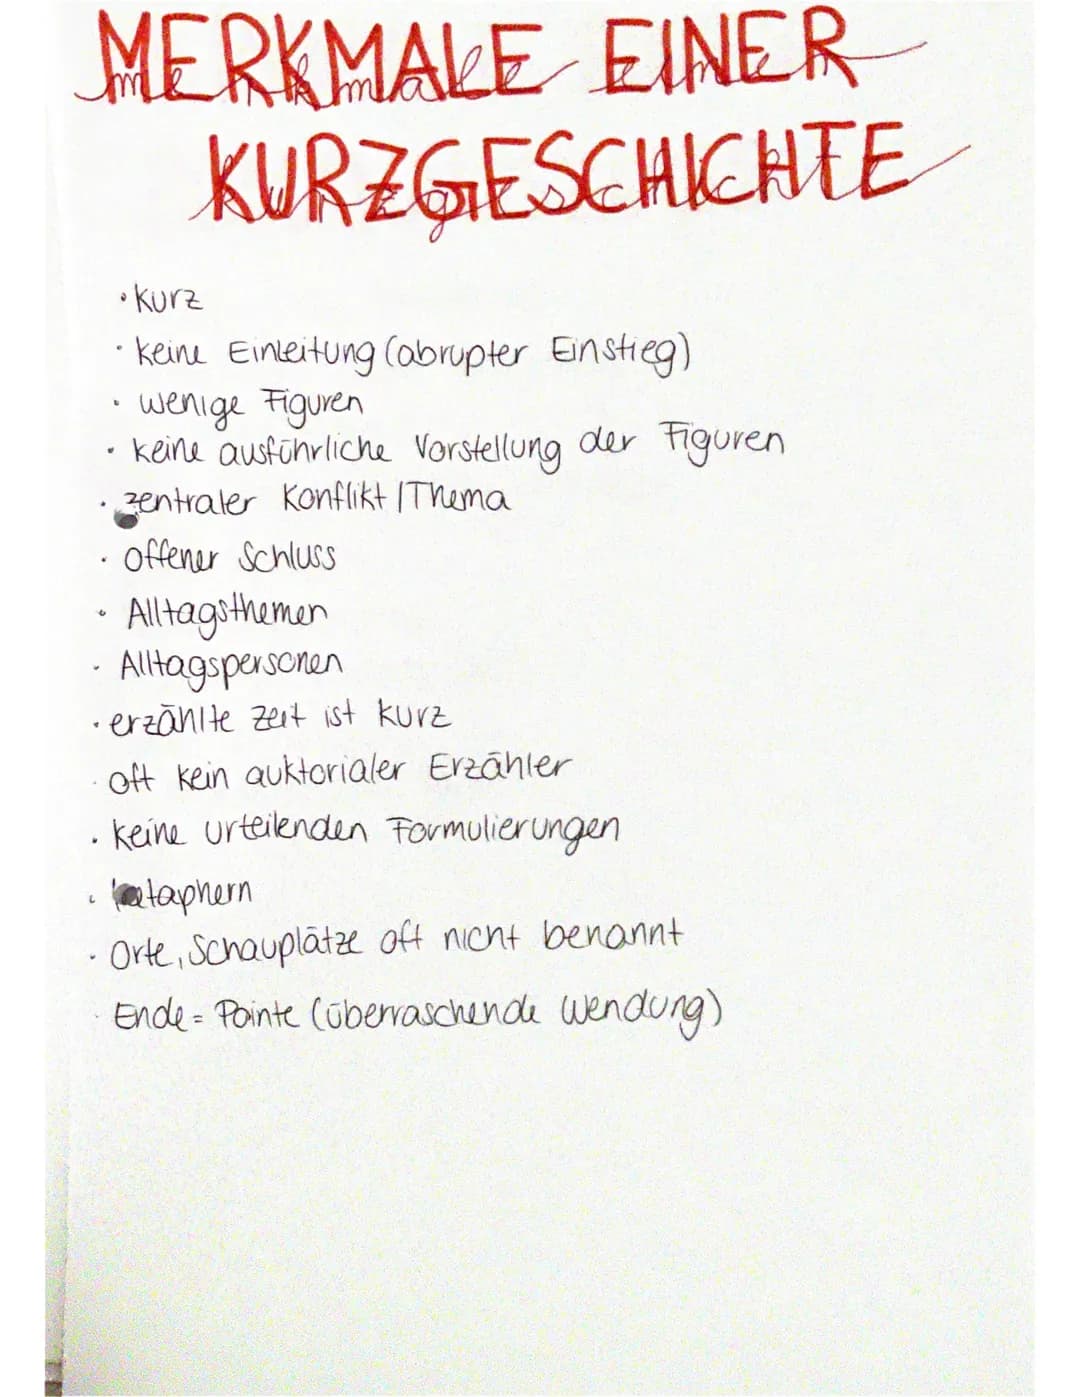 MERKMALE EINER
KURZGESCHICHTE
• kurz
• keine Einleitung (abrupter Einstieg)
• wenige Figuren
• keine ausführliche Vorstellung der Figuren
• zentraler Konflikt / Thema
• offener Schluss
• Alltagsthemen
• Alltagspersonen
• erzählte Zeit ist kurz
• oft kein auktorialer Erzähler
• keine urteilenden Formulierungen
•
• Orte, Schauplätze oft nicht benannt
• Ende = Pointe (überraschende Wendung)